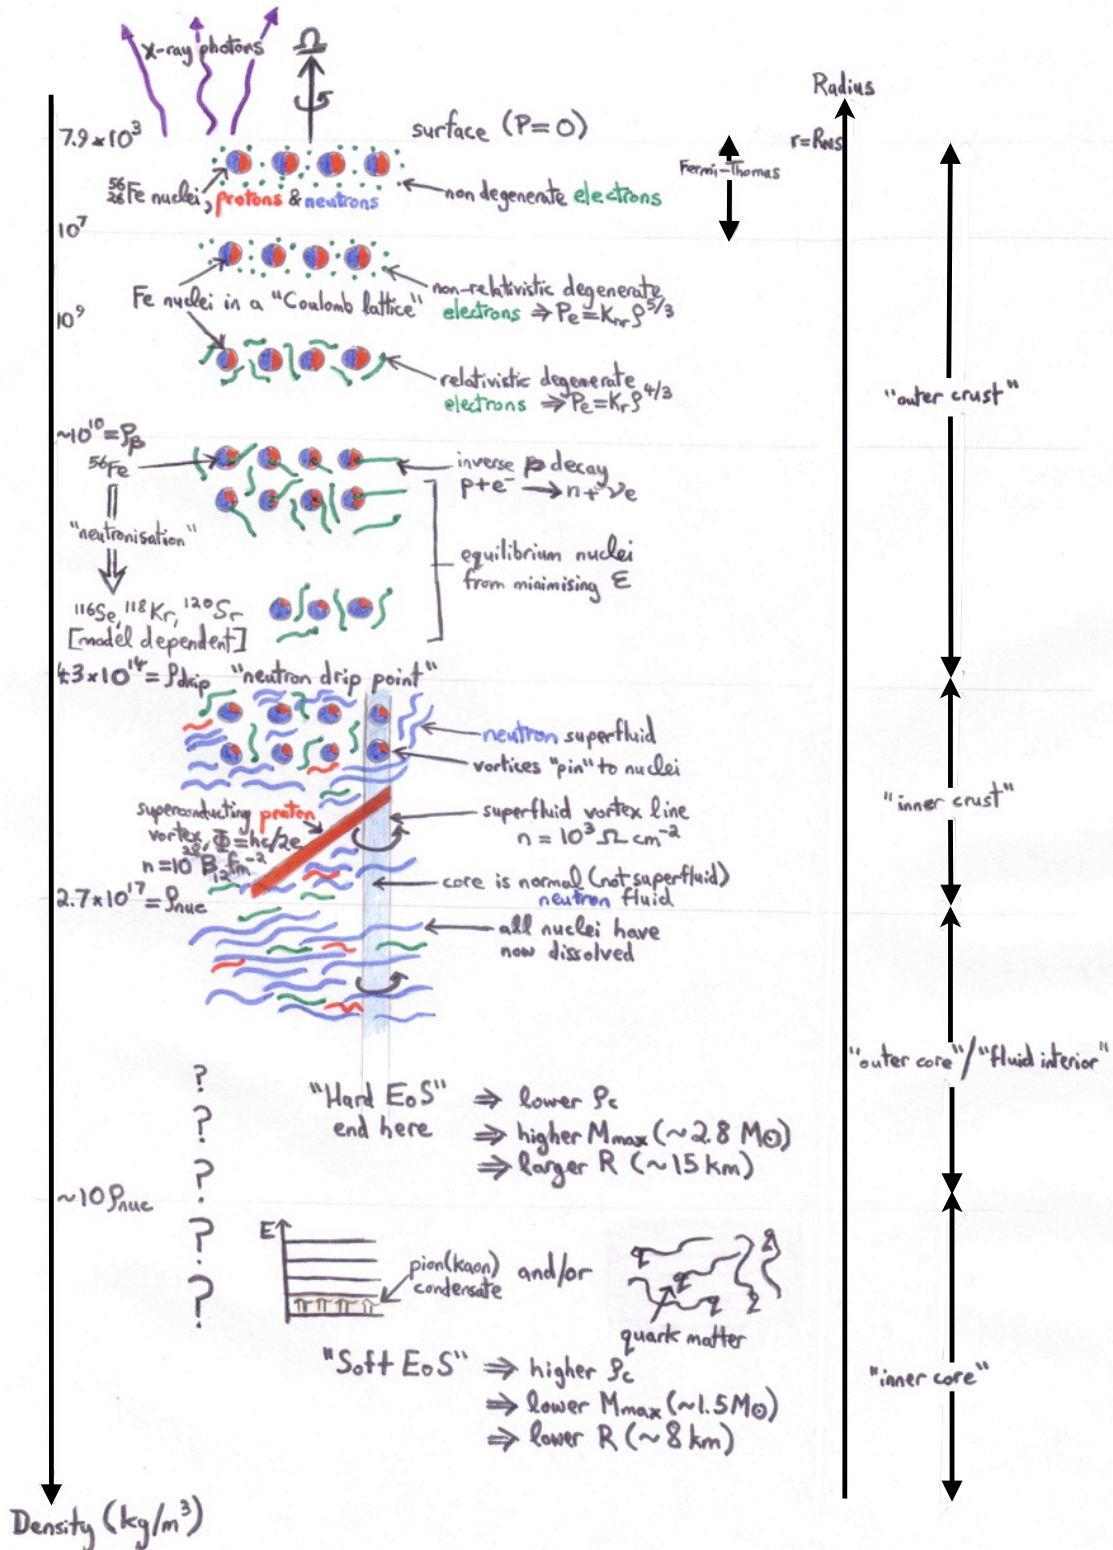 X-ray photons
Ω
Radius
7.9×10³
surface (P=0)
r=RNS
Fermi-Thomas
⁵⁶₂₆Fe nuclei, protons & neutrons
non degenerate electrons
10⁷
Fe nuclei in a "Coulomb lattice"
non-relativistic degenerate
electrons ⇒ Pe=Knrρ^5/3
10⁹
relativistic degenerate
electrons ⇒ Pe=Krρ^4/3
"outer crust"
~10¹⁰=ρβ
⁵⁶Fe
inverse β decay
p+e⁻ → n+νe
"neutronisation"
equilibrium nuclei
from minimising ε
¹¹⁶Se, ¹¹⁸Kr, ¹²⁰Sr
[model dependent]
4.3×10¹⁴=ρdrip "neutron drip point"
neutron superfluid
vortices "pin" to nuclei
"inner crust"
superconducting proton
vortex, Φ=hc/2e
superfluid vortex line
n = 10³ Ω cm⁻²
core is normal (not superfluid)
neutron fluid
2.7×10¹⁷=ρnuc
all nuclei have
now dissolved
"outer core"/"fluid interior"
?
?
?
?
?
"Hard EoS"
end here
⇒ lower ρc
⇒ higher Mmax (~2.8 M⊙)
⇒ larger R (~15 km)
~10ρnuc
E
π π π π
pion(kaon)
condensate
and/or
q q q q q
quark matter
"Soft EoS"
⇒ higher ρc
⇒ lower Mmax (~1.5M⊙)
⇒ lower R (~8 km)
"inner core"
Density (kg/m³)